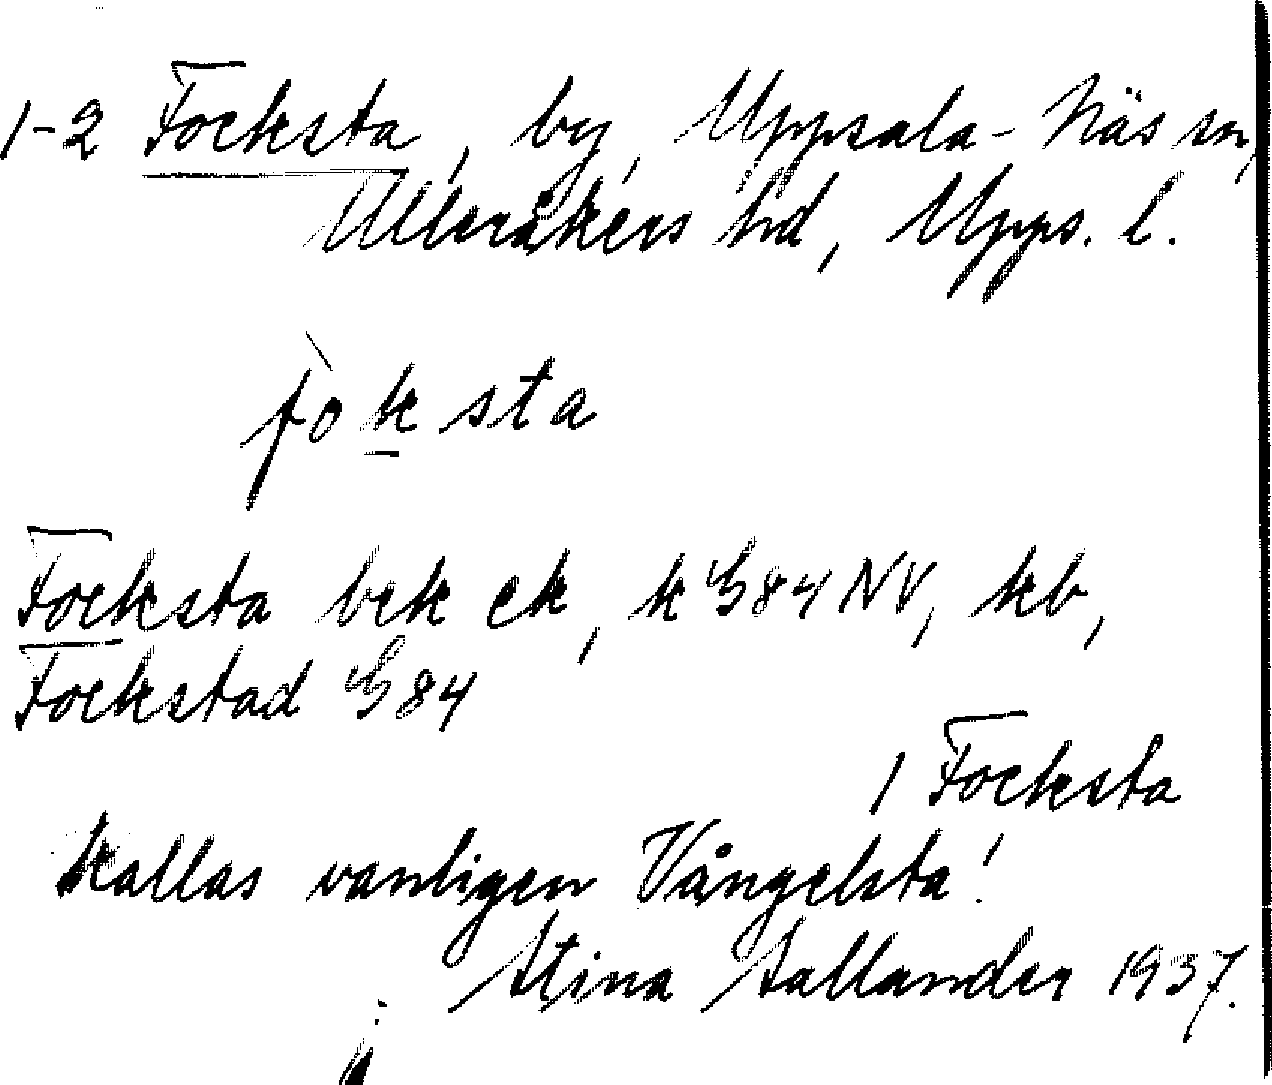 1-2 Focksta, by, Uppsala-Näs sn,
Ulleråkers hd, Upps. l.
fòksta
Focksta bek ek, k G84 NV, kb,
Fockstad G84
1 Focksta
Kallas vanligen Vångelsta!
Stina Sallander 1937.